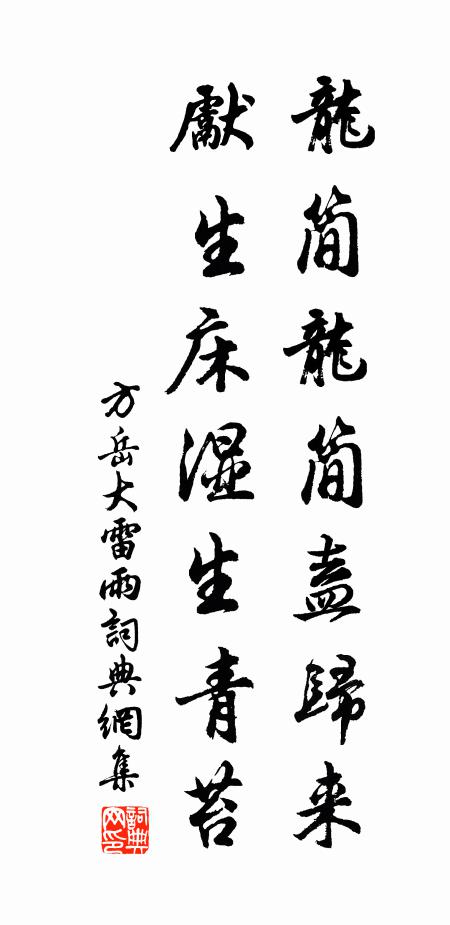 龍简龍简盍歸来
獻生床湿生青苔
方岳大雷雨詞典網集
詞典网印